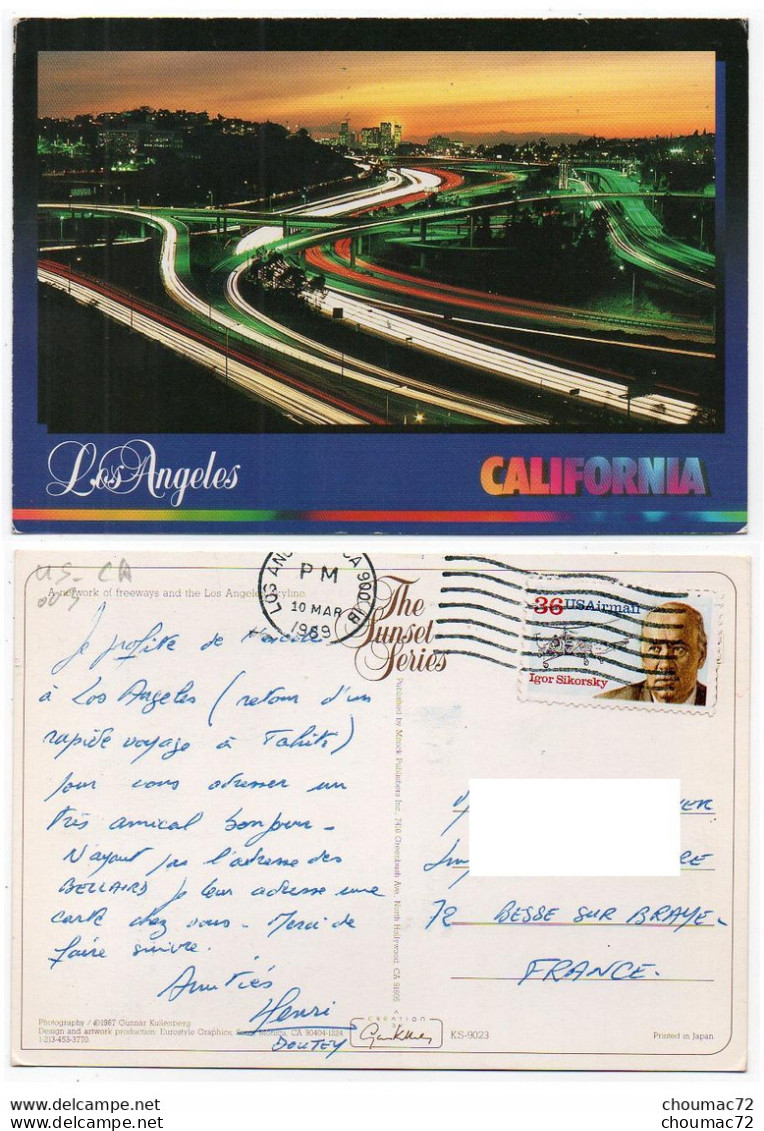 Los Angeles
CALIFORNIA
US-CA
003
A network of freeways and the Los Angeles skyline.
LOS ANG CA 900 1B
PM
10 MAR
1989
The
Sunset
Series
36 USAirmail
Igor Sikorsky
Je profite de l'escale
à Los Angeles (retour d'un
rapide voyage à Tahiti)
pour vous adresser un
très amical bonjour.
N'ayant pas l'adresse des
BELLAIRD je leur adresse une
carte chez vous. Merci de
faire suivre.
Amitiés
Henri
DOUTEY
Published by Mitock Publishers Inc., 7410 Greenbush Ave. North Hollywood, CA 91605
72 BESSE SUR BRAYE
FRANCE.
Photography / ©1987 Gunnar Kullenberg
Design and artwork production: Eurostyle Graphics, Santa Monica, CA 90404-1324
1-213-453-3770.
CREATION
KS-9023
Printed in Japan
choumac72 choumac72
choumac72 choumac72